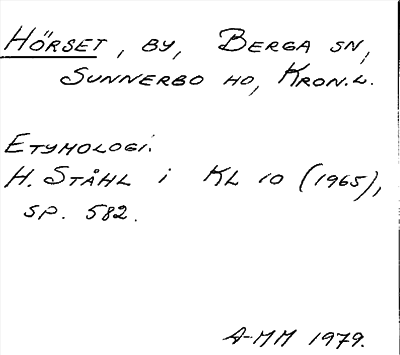 HÖRSET, BY, BERGA SN,
SUNNERBO HD, KRON.L.
ETYMOLOGI:
H. STÅHL i KL 10 (1965),
SP. 582.
A-MM 1979.